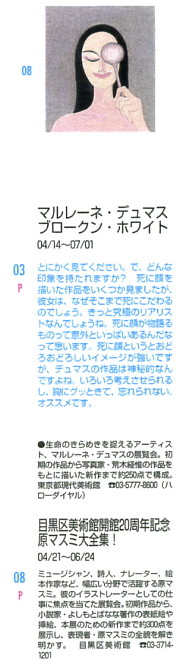 08
マルレーネ・デュマス
ブロークン・ホワイト
04/14〜07/01
03
P
とにかく見てください。で、どんな
印象を持たれますか？　死に顔を
描いた作品をいくつか見ましたが、
彼女は、なぜそこまで死にこだわる
のでしょう。きっと究極のリアリス
トなんでしょうね。死に顔が物語る
ものって意外といっぱいあるんだな
って思います。死に顔というとおど
ろおどろしいイメージが強いです
が、デュマスの作品は神秘的なん
ですよね。いろいろ考えさせられる
し、胸にグッときて、忘れられない。
オススメです。
●生命のきらめきを捉えるアーティス
ト、マルレーネ・デュマスの展覧会。初
期の作品から写真家・荒木経惟の作品を
もとに描いた新作まで約250点で構成。
東京都現代美術館　☎03-5777-8600（ハ
ローダイヤル）
目黒区美術館開館20周年記念
原マスミ大全集！
04/21〜06/24
08
P
ミュージシャン、詩人、ナレーター、絵
本作家など、幅広い分野で活躍する原マ
スミ。彼のイラストレーターとしての仕
事に焦点を当てた展覧会。初期作品から、
小説家・よしもとばなな著作の表紙絵や
挿絵、本展のための新作まで約300点を
展示し、表現者・原マスミの全貌を解き
明かす。　目黒区美術館　☎03-3714-
1201